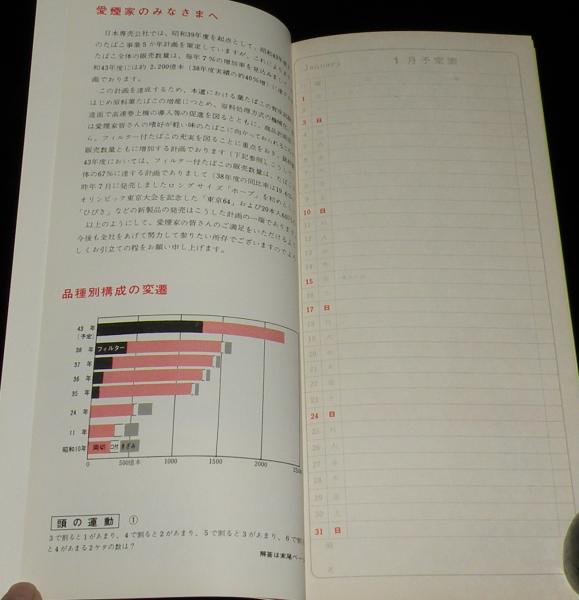 愛煙家のみなさまへ
日本専売公社では、昭和39年度を起点として、昭和43年度
のたばこ事業5か年計画を策定していますが、これによりま
たばこ全体の販売数量は、毎年7%の増加率を見込みまして
和43年度には約2,200億本(38年度実績の約40%増)に達
画であります。
この計画を達成するため、本道における葉たばこの
はじめ原料葉たばこの増産につとめ、原料処理方式の機械化
造面で高速巻上機の導入等の促進を図るとともに、商品計画
は愛煙家皆さんの嗜好が軽い味のたばこに向かっておられる
ら、フィルター付たばこの充実を図ることに重点をおき、
販売数量ともに増加する計画であります(下記参照)
43年度においては、フィルター付たばこの販売数量は、たばこ
体の67%に達する計画でありまして(38年度の同比率は19.4
昨年7月に発売しましたロングサイズ「ホープ」を初め
オリンピック東京大会を記念した「東京64」および20本入
「ひびき」などの新製品の発売はこうした計画の一端でありま
以上のようにして、愛煙家の皆さんのご満足をいただけるよ
今後も全社をあげて努力して参りたい所存でございますのでよ
しくお引立ての程をお願い申し上げます。
品種別構成の変遷
43年
(予定)
38年 フィルター
37年
36年
35年
24年
11年
昭和10年 両切 口付 きざみ
0 500億本 1000 1500 2000 250
頭の運動 ①
3で割ると1があまり、4で割ると2があまり、5で割ると3があまり、6で割
と4があまる2ケタの数は?
解答は末尾ペー
January 1月予定表
曜
1
3 日
10 日
15
17 日
24 日
31 日